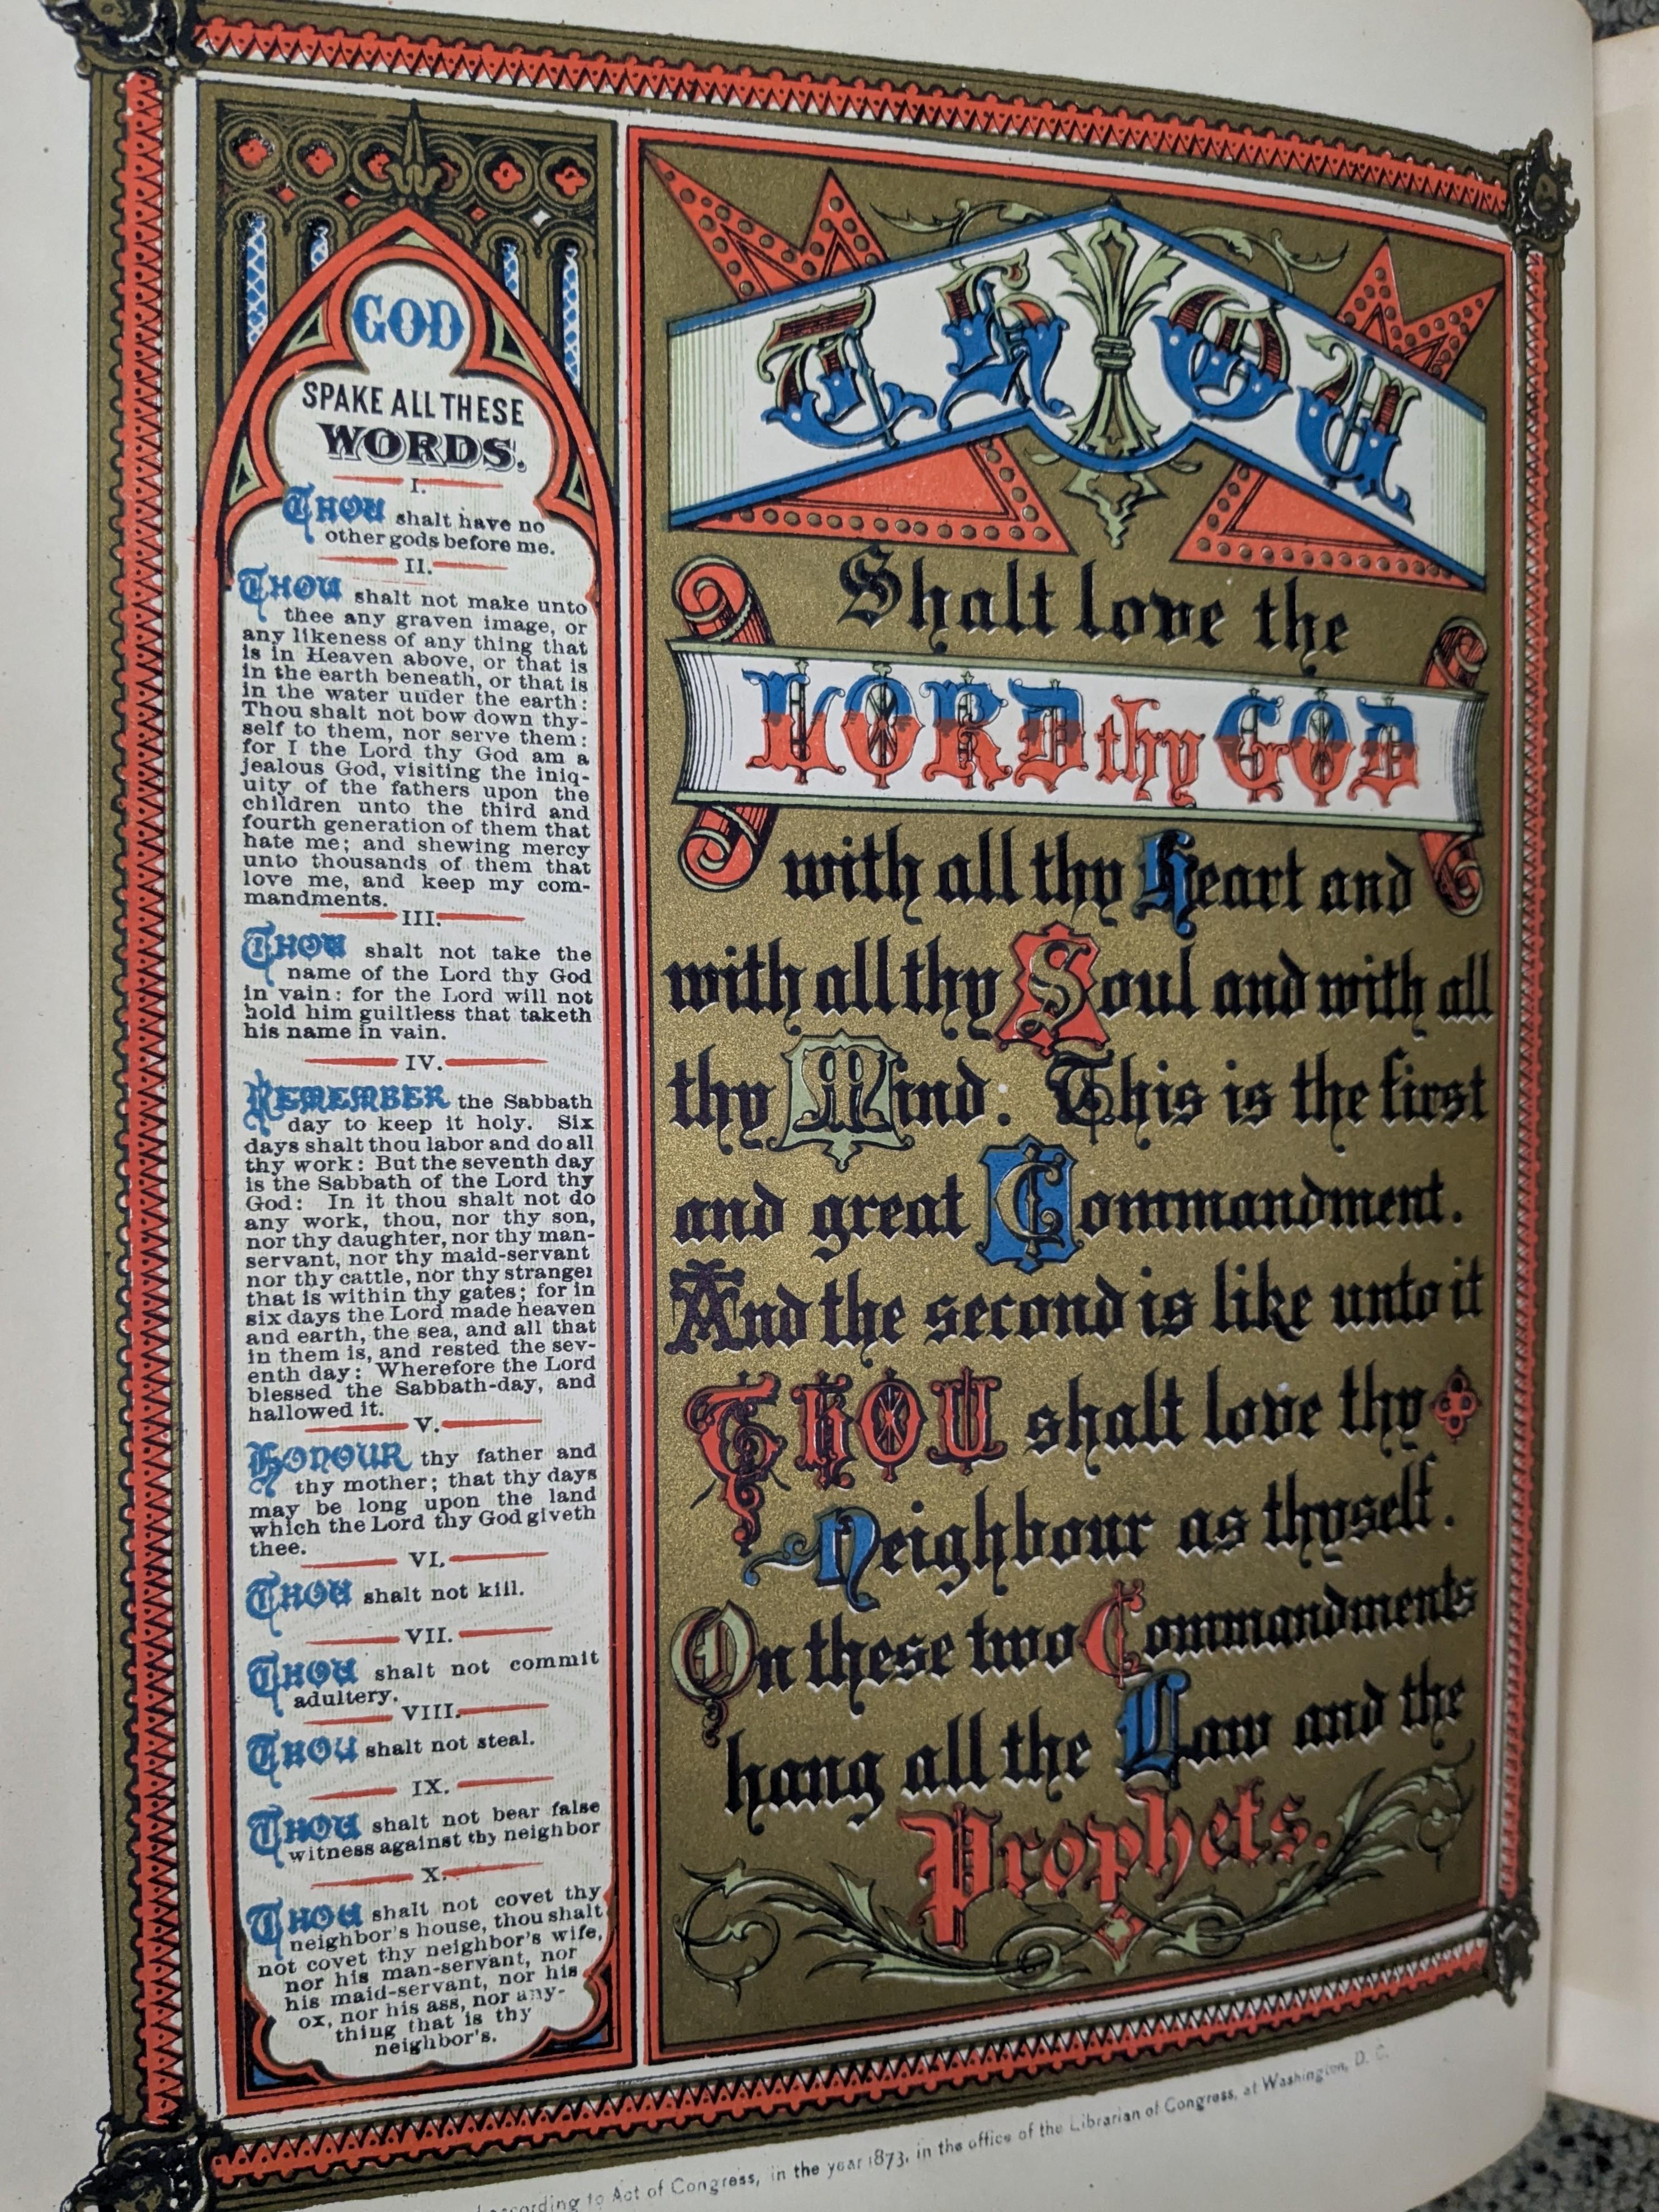 GOD
SPAKE ALL THESE
WORDS.
I.
THOU shalt have no
other gods before me.
II.
THOU shalt not make unto
thee any graven image, or
any likeness of any thing that
is in Heaven above, or that is
in the earth beneath, or that is
in the water under the earth:
Thou shalt not bow down thy-
self to them, nor serve them:
for I the Lord thy God am a
jealous God, visiting the iniq-
uity of the fathers upon the
children unto the third and
fourth generation of them that
hate me; and shewing mercy
unto thousands of them that
love me, and keep my com-
mandments.
III.
THOU shalt not take the
name of the Lord thy God
in vain: for the Lord will not
hold him guiltless that taketh
his name in vain.
IV.
REMEMBER the Sabbath
day to keep it holy. Six
days shalt thou labor and do all
thy work: But the seventh day
is the Sabbath of the Lord thy
God: In it thou shalt not do
any work, thou, nor thy son,
nor thy daughter, nor thy man-
servant, nor thy maid-servant
nor thy cattle, nor thy stranger
that is within thy gates; for in
six days the Lord made heaven
and earth, the sea, and all that
in them is, and rested the sev-
enth day: Wherefore the Lord
blessed the Sabbath-day, and
hallowed it.
V.
HONOUR thy father and
thy mother; that thy days
may be long upon the land
which the Lord thy God giveth
thee.
VI.
THOU shalt not kill.
VII.
THOU shalt not commit
adultery.
VIII.
THOU shalt not steal.
IX.
THOU shalt not bear false
witness against thy neighbor
X.
THOU shalt not covet thy
neighbor's house, thou shalt
not covet thy neighbor's wife,
nor his man-servant, nor
his maid-servant, nor his
ox, nor his ass, nor any-
thing that is thy
neighbor's.
THOU
Shalt love the
LORD thy GOD
with all thy Heart and
with all thy Soul and with all
thy Mind. This is the first
and great Commandment.
And the second is like unto it
THOU shalt love thy
Neighbour as thyself.
On these two Commandments
hang all the Law and the
Prophets.
according to Act of Congress, in the year 1873, in the office of the Librarian of Congress, at Washington, D. C.